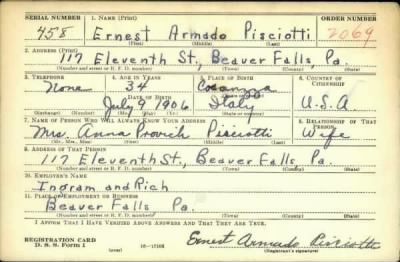 SERIAL NUMBER 1. NAME (Print) ORDER NUMBER
458 Ernest Armado Pisciotti 2069
(First) (Middle) (Last)
2. ADDRESS (Print)
117 Eleventh St., Beaver Falls, Pa.
(Number and street or R. F. D. number) (Town) (County) (State)
3. TELEPHONE 4. AGE IN YEARS 5. PLACE OF BIRTH 6. COUNTRY OF CITIZENSHIP
None 34 Cosenza
DATE OF BIRTH
July 1906 Italy U.S.A.
(Mo.) (Day) (Yr.)
7. NAME OF PERSON WHO WILL ALWAYS KNOW YOUR ADDRESS 8. RELATIONSHIP OF THAT PERSON
Mrs. Anna Provich Pisciotti Wife
(Mr., Mrs., Miss) (First) (Middle) (Last)
9. ADDRESS OF THAT PERSON
117 Eleventh St., Beaver Falls, Pa.
(Number and street or R. F. D. number) (Town) (County) (State)
10. EMPLOYER'S NAME
Ingram and Rich
11. PLACE OF EMPLOYMENT OR BUSINESS
Beaver Falls Pa.
(Number and street or R. F. D. number) (Town) (County) (State)
I AFFIRM THAT I HAVE VERIFIED ABOVE ANSWERS AND THAT THEY ARE TRUE.
REGISTRATION CARD
D. S. S. Form 1 (over) 16—17105 Ernest Armado Pisciotti
(Registrant's signature)